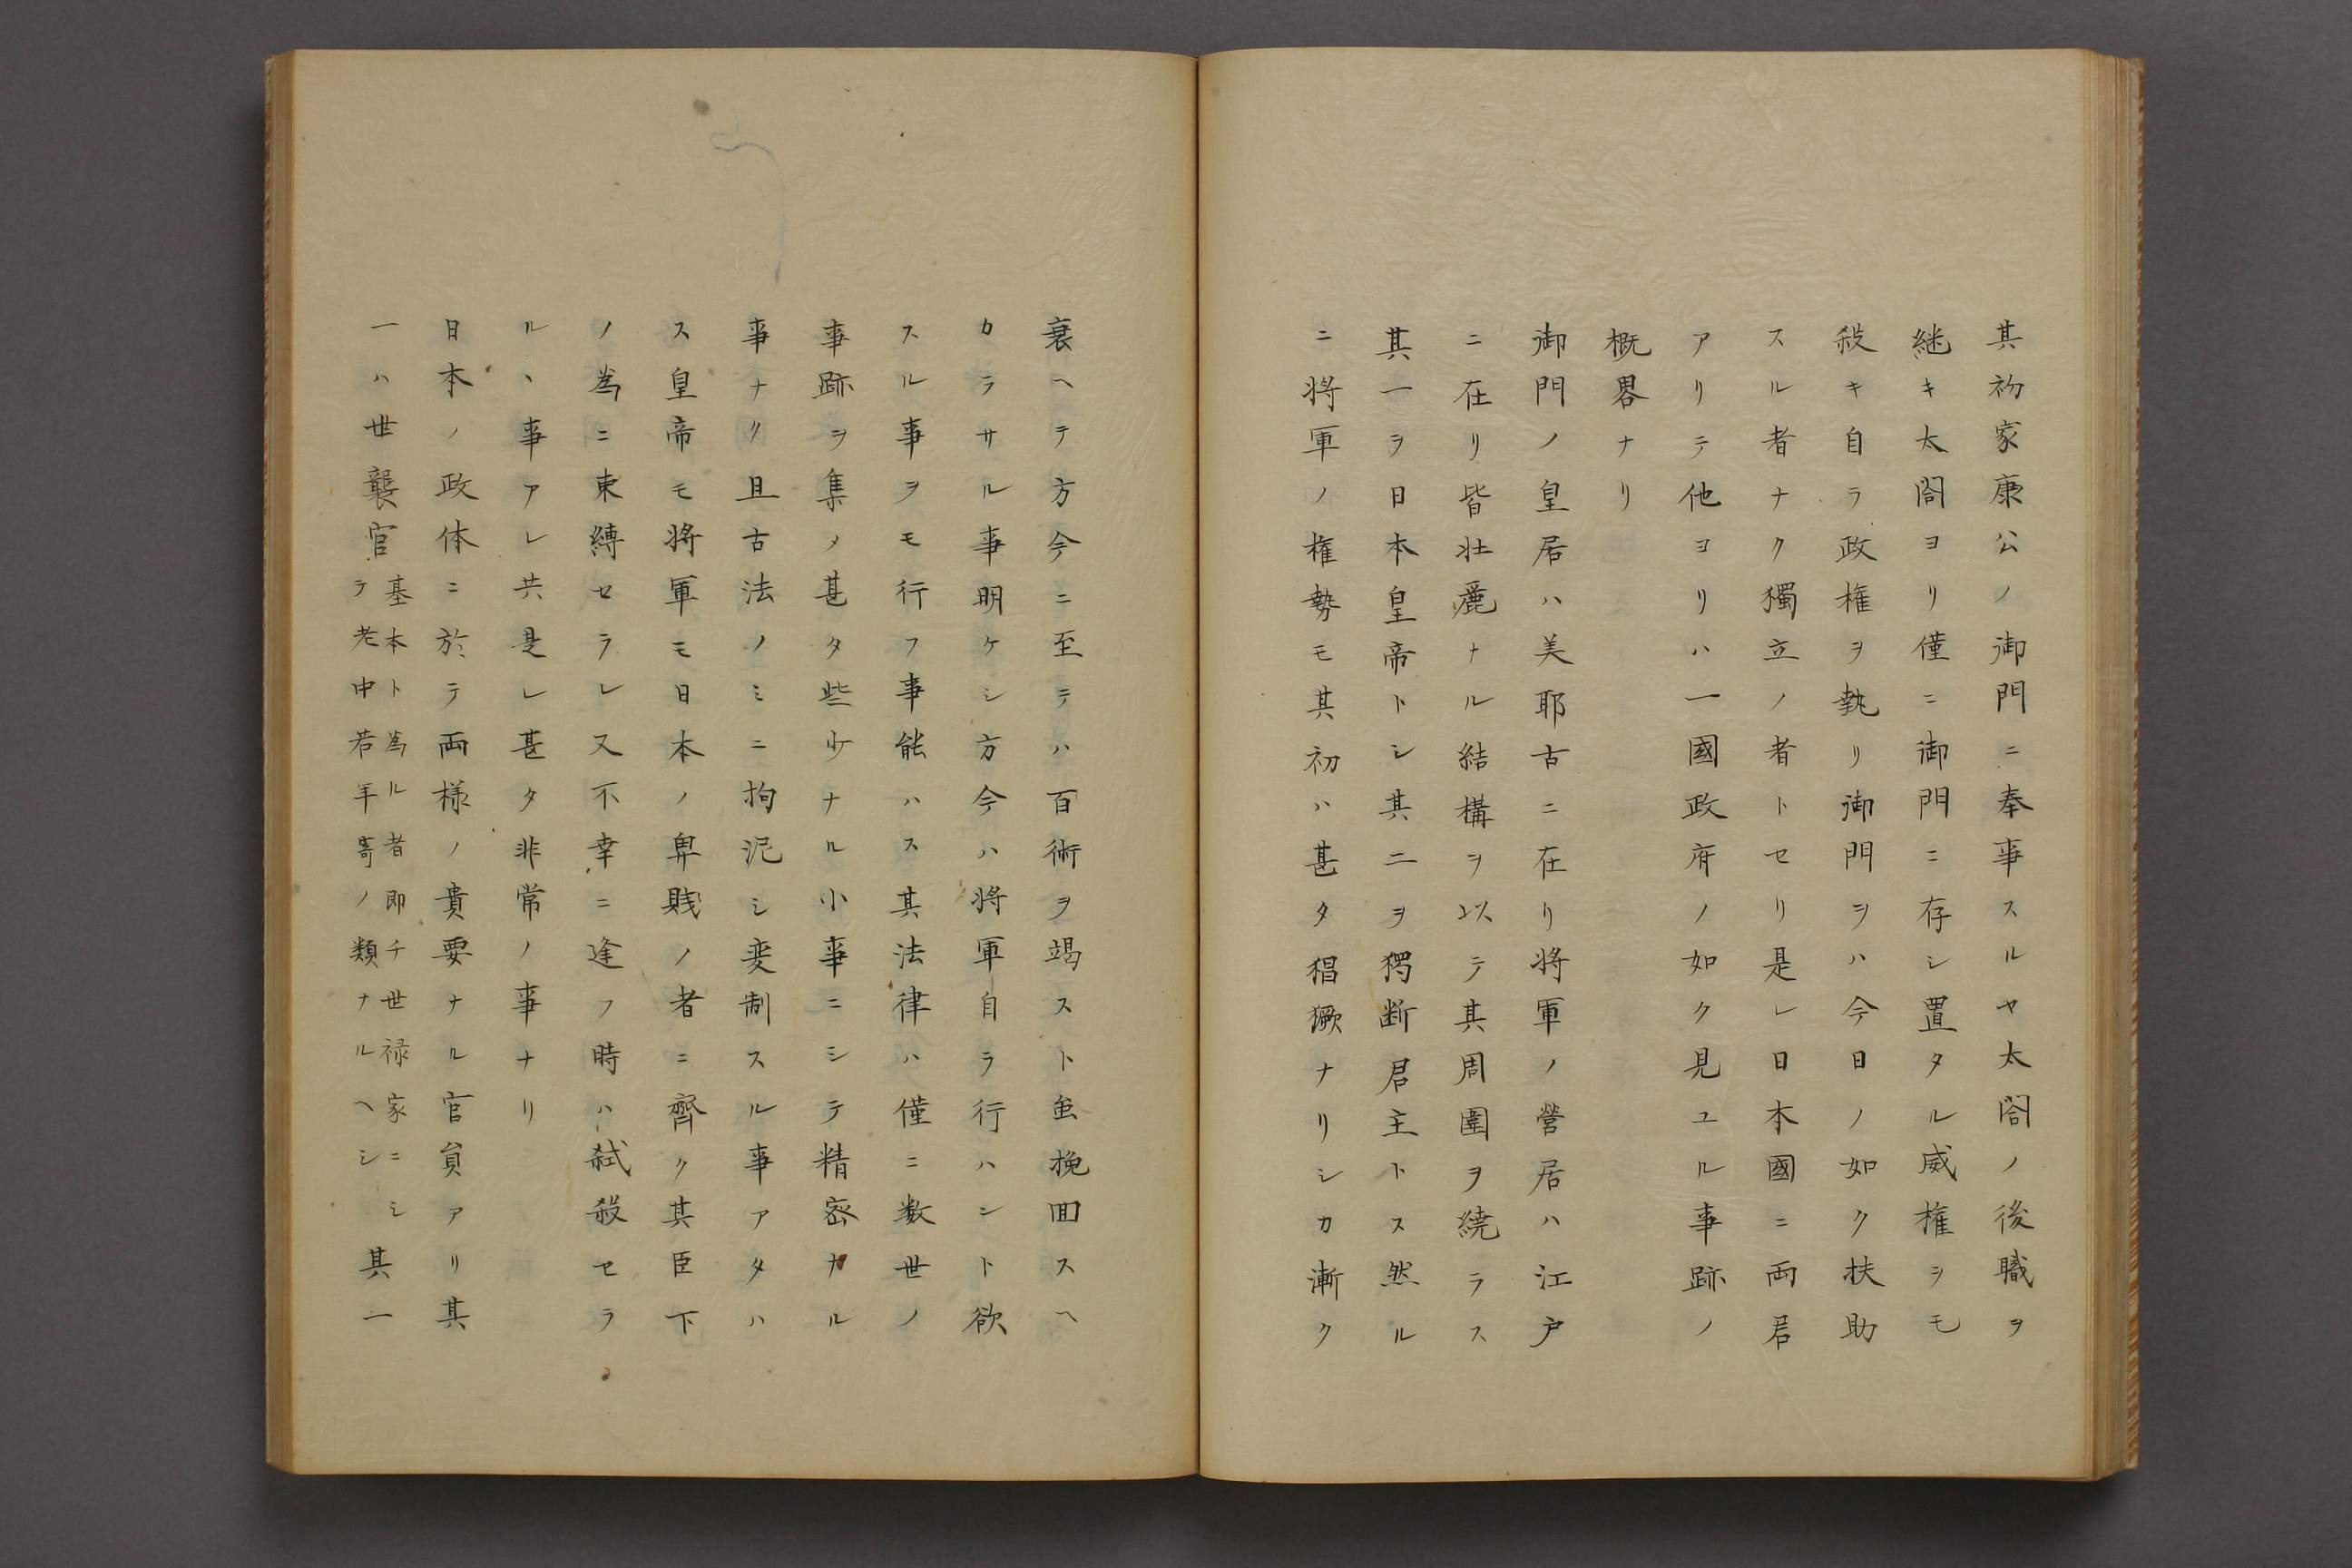 其初家康公ノ御門ニ奉事スルヤ太閤ノ後職ヲ
継キ太閤ヨリ僅ニ御門ニ存シ置タル威権ヲモ
殺キ自ラ政権ヲ執リ御門ヲハ今日ノ如ク扶助
スル者ナク獨立ノ者トセリ是レ日本國ニ両君
アリテ他ヨリハ一國政府ノ如ク見ユル事跡ノ
概畧ナリ
御門ノ皇居ハ美耶古ニ在リ将軍ノ營居ハ江戸
ニ在リ皆壮麗ナル結構ヲ以テ其周圍ヲ繞ラス
其一ヲ日本皇帝トシ其二ヲ獨断君主トス然ル
ニ将軍ノ権勢モ其初ハ甚タ猖獗ナリシカ漸ク
衰ヘテ方今ニ至テハ百術ヲ竭スト虽挽回スヘ
カラサル事明ケシ方今ハ将軍自ラ行ハント欲
スル事ヲモ行フ事能ハス其法律ハ僅ニ数世ノ
事跡ヲ集メ甚タ些少ナル小事ニシテ精密ナル
事ナク且古法ノミニ拘泥シ変制スル事アタハ
ス皇帝モ将軍モ日本ノ卑賤ノ者ニ齊ク其臣下
ノ為ニ束縛セラレ又不幸ニ逢フ時ハ弑殺セラ
ルヽ事アレ共是レ甚タ非常ノ事ナリ
日本ノ政体ニ於テ両様ノ貴要ナル官員アリ其
一ハ世襲官基本ト為ル者即チ世禄家ニシ
テ老中若年寄ノ類ナルヘシ其一